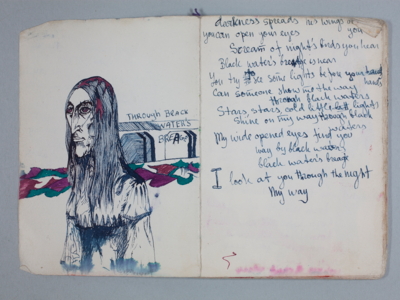 THROUGH BLACK
WATER'S
BREA
darkness spreads his wings on
you can open your eyes you
Scream of night's birds you hear
Black water's is near
You try to see some lights
Can someone show me the way
through black waters
Stars, stars cold light
Shine on my way through black
waters
My wide opened eyes find you
way by black waters
black water's
I look at you through the night
My way